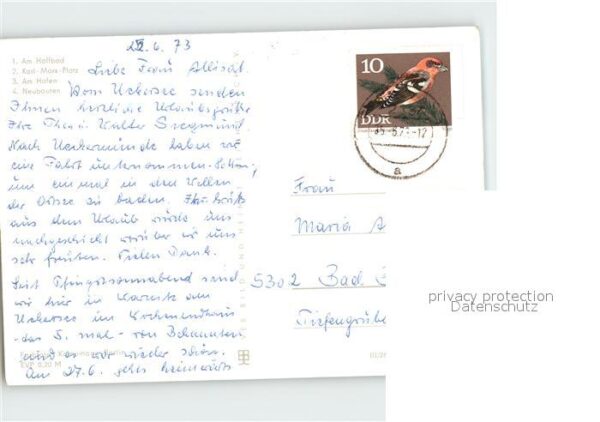 22.6.73
1. Am Haffbad
2. Karl-Marx-Platz
3. Am Hafen
4. Neubauten
Liebe Frau
Vom senden
Ihnen herzliche Urlaubsgrüße
Ihre Walter Siegmund.
Nach Ueckermünde haben wir
eine Fahrt unternommen
um einmal in den Wellen
der Ostsee zu baden. Ihr Gruß
aus dem Urlaub wurde uns
nachgeschickt worüber wir uns
sehr freuten. Vielen Dank.
Seit Pfingstsonnabend sind
wir hier in am
im Wochenendhaus
- das 5. mal - von Bekannten
und es war wieder schön.
Am 27.6. gehts heimwärts
EVP 0,20 M
BILD UND HEIMAT
10
DDR
a
Frau
Maria A
5302 Bad
Tiefengrube
privacy protection
Datenschutz